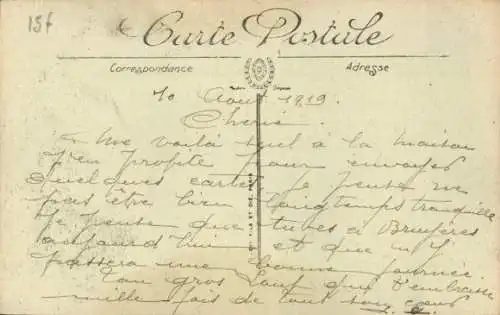 15f
Carte Postale
Correspondance
Adresse
10 Août 1919.
Cherie.
Me voilà seul à la maison
j'en profite pour envoyer
quelques cartes, je pense ne
pas être bien longtemps tranquille
Je pense que tu es à Bruyères
aujourd'hui et que tu y
passera une bonne journée.
Ton gros Loup qui t'embrasse
mille fois de tout son cœur